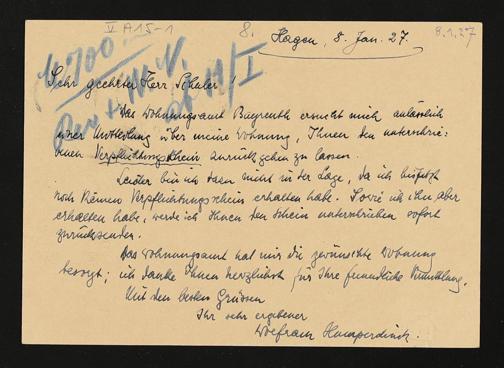 V A 15-1
8.
8.1.27
Hagen, 8. Jan. 27.
M. 700.
Sehr geehrter Herr Schuler!
Das Wohnungsamt Bayreuth ersucht mich anlässlich
einer Mitteilung über meine Wohnung, Ihnen den unterschrie=
benen Verpflichtungsschein zurückgehen zu lassen.
Leider bin ich dazu nicht in der Lage, da ich bis jetzt
noch keinen Verpflichtungsschein erhalten habe. Sowie ich ihn aber
erhalten habe, werde ich Ihnen den Schein unterschrieben sofort
zurücksenden.
Das Wohnungsamt hat mir die gewünschte Wohnung
besorgt; ich danke Ihnen herzlichst für Ihre freundliche Vermittlung.
Mit den besten Grüssen
Ihr sehr ergebener
Wolfram Humperdinck.